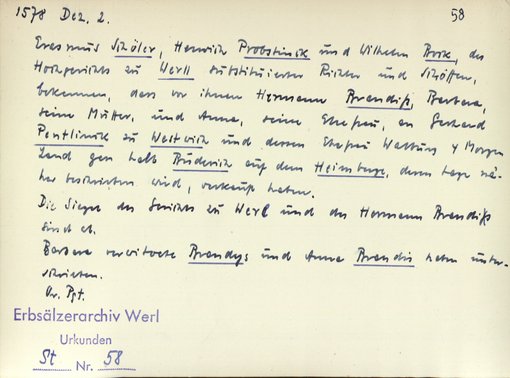 1578 Dez. 2.
58
Erasmus Schöler, Henrich Probstinck und Wilhelm Brik, des
Hochgerichts zu Werll substituierter Richter und Schöffen,
bekennen, dass vor ihnen Hermann Brandiß, Barbara,
seine Mutter, und Anna, seine Ehefrau, an Gerhard
Pentlinck zu Westrich und dessen Ehefrau Walburg 4 Morgen
Land gen halb Büderich auf dem Heimberge, deren Lage nä-
her beschrieben wird, verkauft haben.
Die Siegel des Gerichts zu Werl und des Hermann Brandiß
sind ab.
Barbara verwitwete Brandys und Anna Brandis haben unter-
schrieben.
Or. Pgt.
Erbsälzerarchiv Werl
Urkunden
St Nr. 58